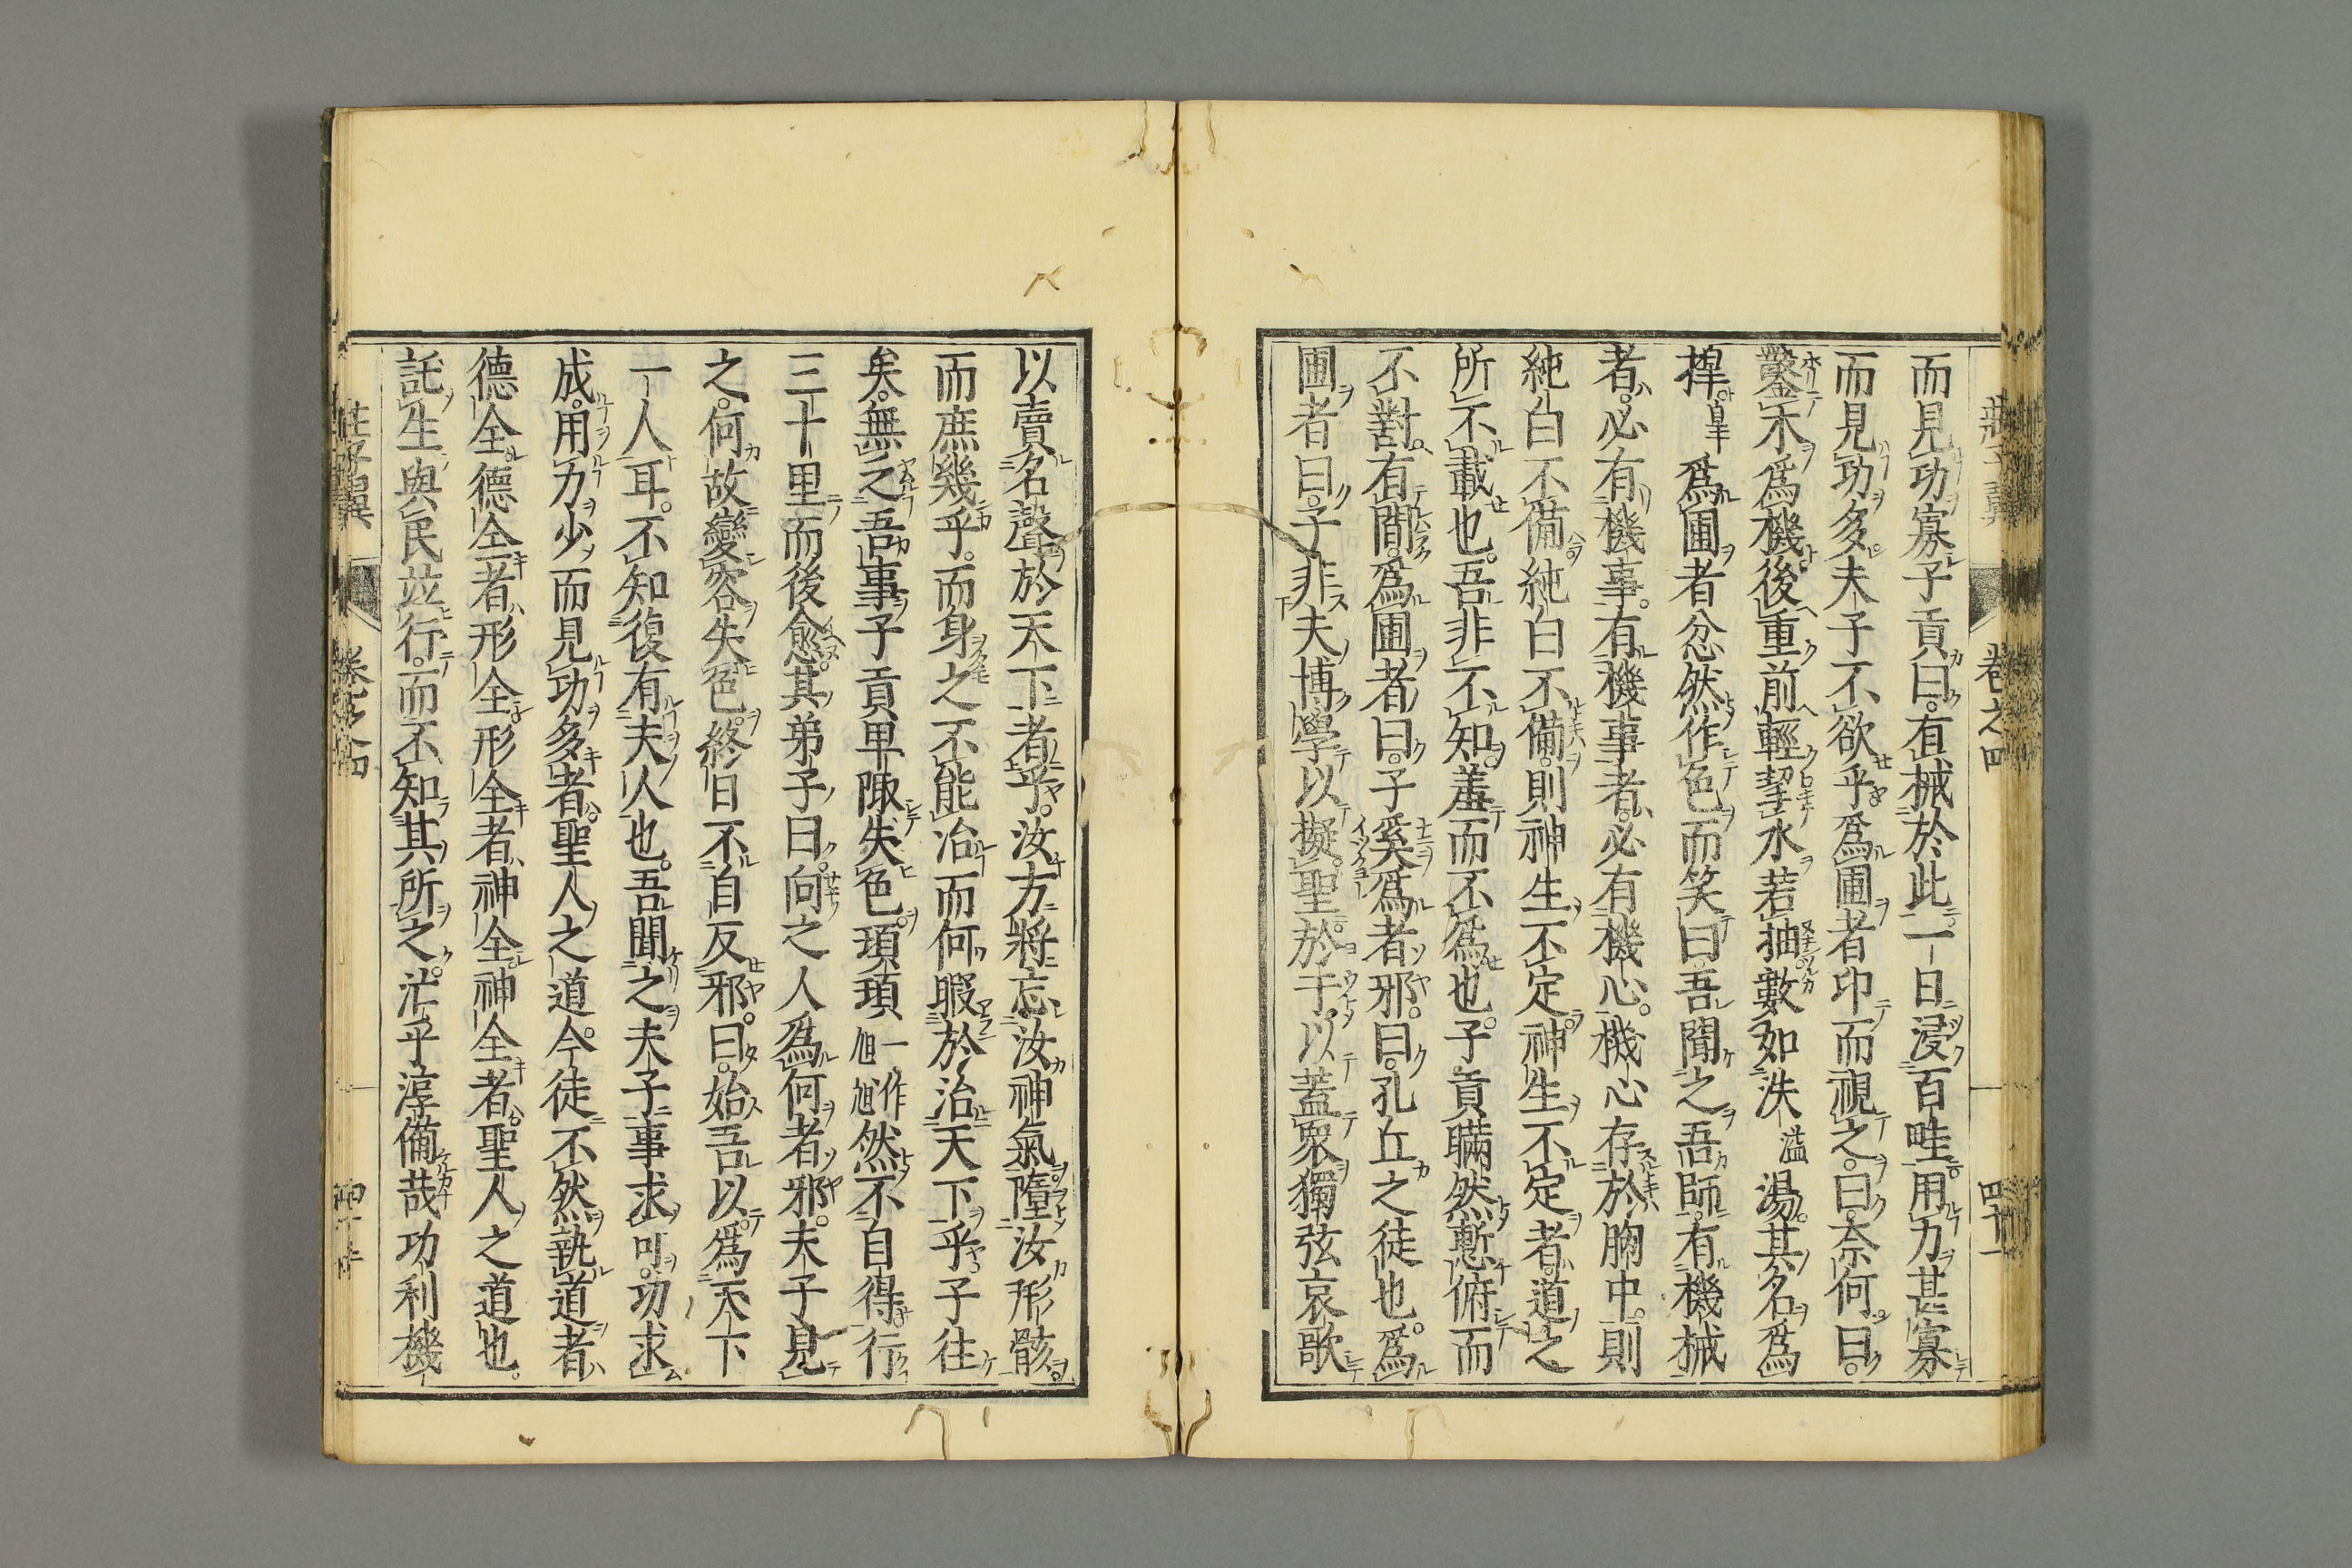 莊子翼
卷之四
四十一
而見功寡子貢曰有械於此一日浸百畦用力甚寡
而見功多夫子不欲乎爲圃者卬而視之曰奈何曰
鑿木爲機後重前輕挈水若抽數如泆溢湯其名爲
槹皐爲圃者忿然作色而笑曰吾聞之吾師有機械
者必有機事有機事者必有機心機心存於胸中則
純白不備純白不備則神生不定神生不定者道之
所不載也吾非不知羞而不爲也子貢瞞然慙俯而
不對有間爲圃者曰子奚爲者邪曰孔丘之徒也爲
圃者曰子非夫博學以擬聖於于以蓋衆獨弦哀歌
以賣名聲於天下者乎汝方將忘汝神氣隳汝形骸
而庶幾乎而身之不能治而何暇於治天下乎子往
矣無乏吾事子貢卑陬失色頊頊一作旭旭然不自得行
三十里而後愈其弟子曰向之人爲何者邪夫子見
之何故變容失色終日不自反邪曰始吾以爲天下
一人耳不知復有夫人也吾聞之夫子事求可功求
成用力少而見功多者聖人之道今徒不然執道者
德全德全者形全形全者神全神全者聖人之道也
託生與民竝行而不知其所之汒乎淳備哉功利機
莊子翼
卷之四